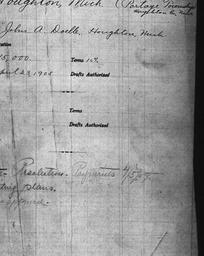 Houghton, Mich (Portage Township
Houghton Co Mich
John A. Doelle, Houghton, Mich
15,000. Terms 10%
April 23, 1908 Drafts Authorized
Terms
Drafts Authorized
Resolution. Payments
plans.
approved.